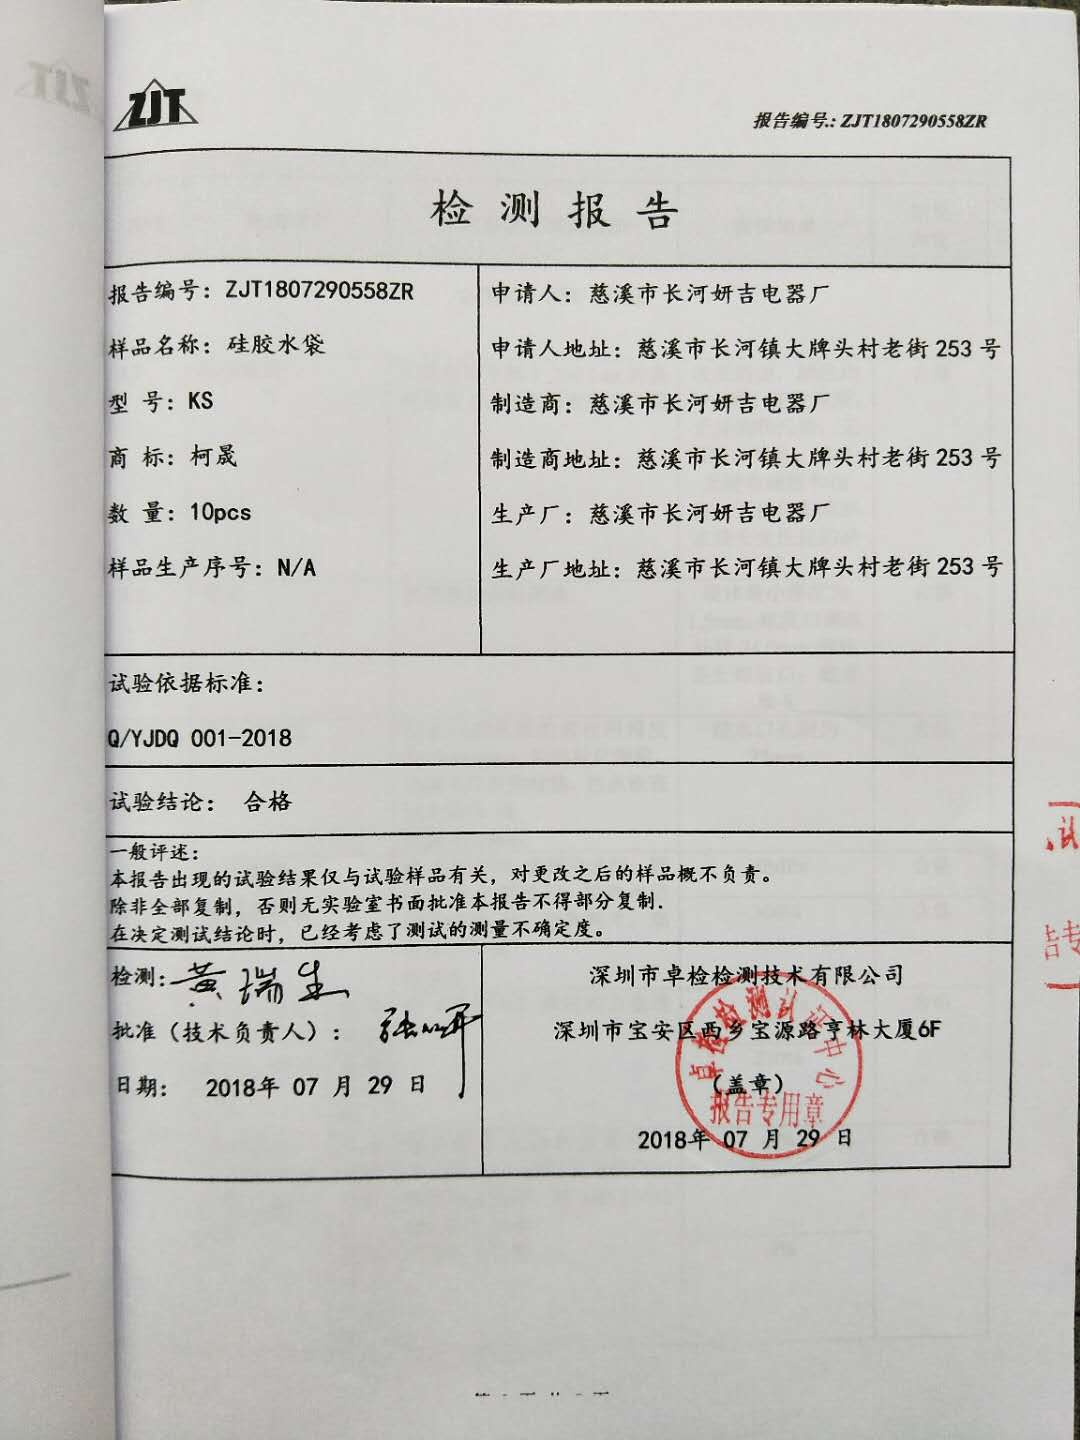 ZJT
报告编号.: ZJT1807290558ZR
检测报告
报告编号: ZJT1807290558ZR
样品名称: 硅胶水袋
型 号: KS
商 标: 柯晟
数 量: 10pcs
样品生产序号: N/A
申请人: 慈溪市长河妍吉电器厂
申请人地址: 慈溪市长河镇大牌头村老街 253 号
制造商: 慈溪市长河妍吉电器厂
制造商地址: 慈溪市长河镇大牌头村老街 253 号
生产厂: 慈溪市长河妍吉电器厂
生产厂地址: 慈溪市长河镇大牌头村老街 253 号
试验依据标准:
Q/YJDQ 001-2018
试验结论: 合格
一般评述:
本报告出现的试验结果仅与试验样品有关, 对更改之后的样品概不负责。
除非全部复制, 否则无实验室书面批准本报告不得部分复制.
在决定测试结论时, 已经考虑了测试的测量不确定度。
检测: 黄瑞生
批准 (技术负责人) : 张
日期: 2018年 07 月 29 日
深圳市卓检检测技术有限公司
深圳市宝安区西乡宝源路亨林大厦6F
(盖章)
2018年 07 月 29 日
卓检检测认证中心
报告专用章
试
告专